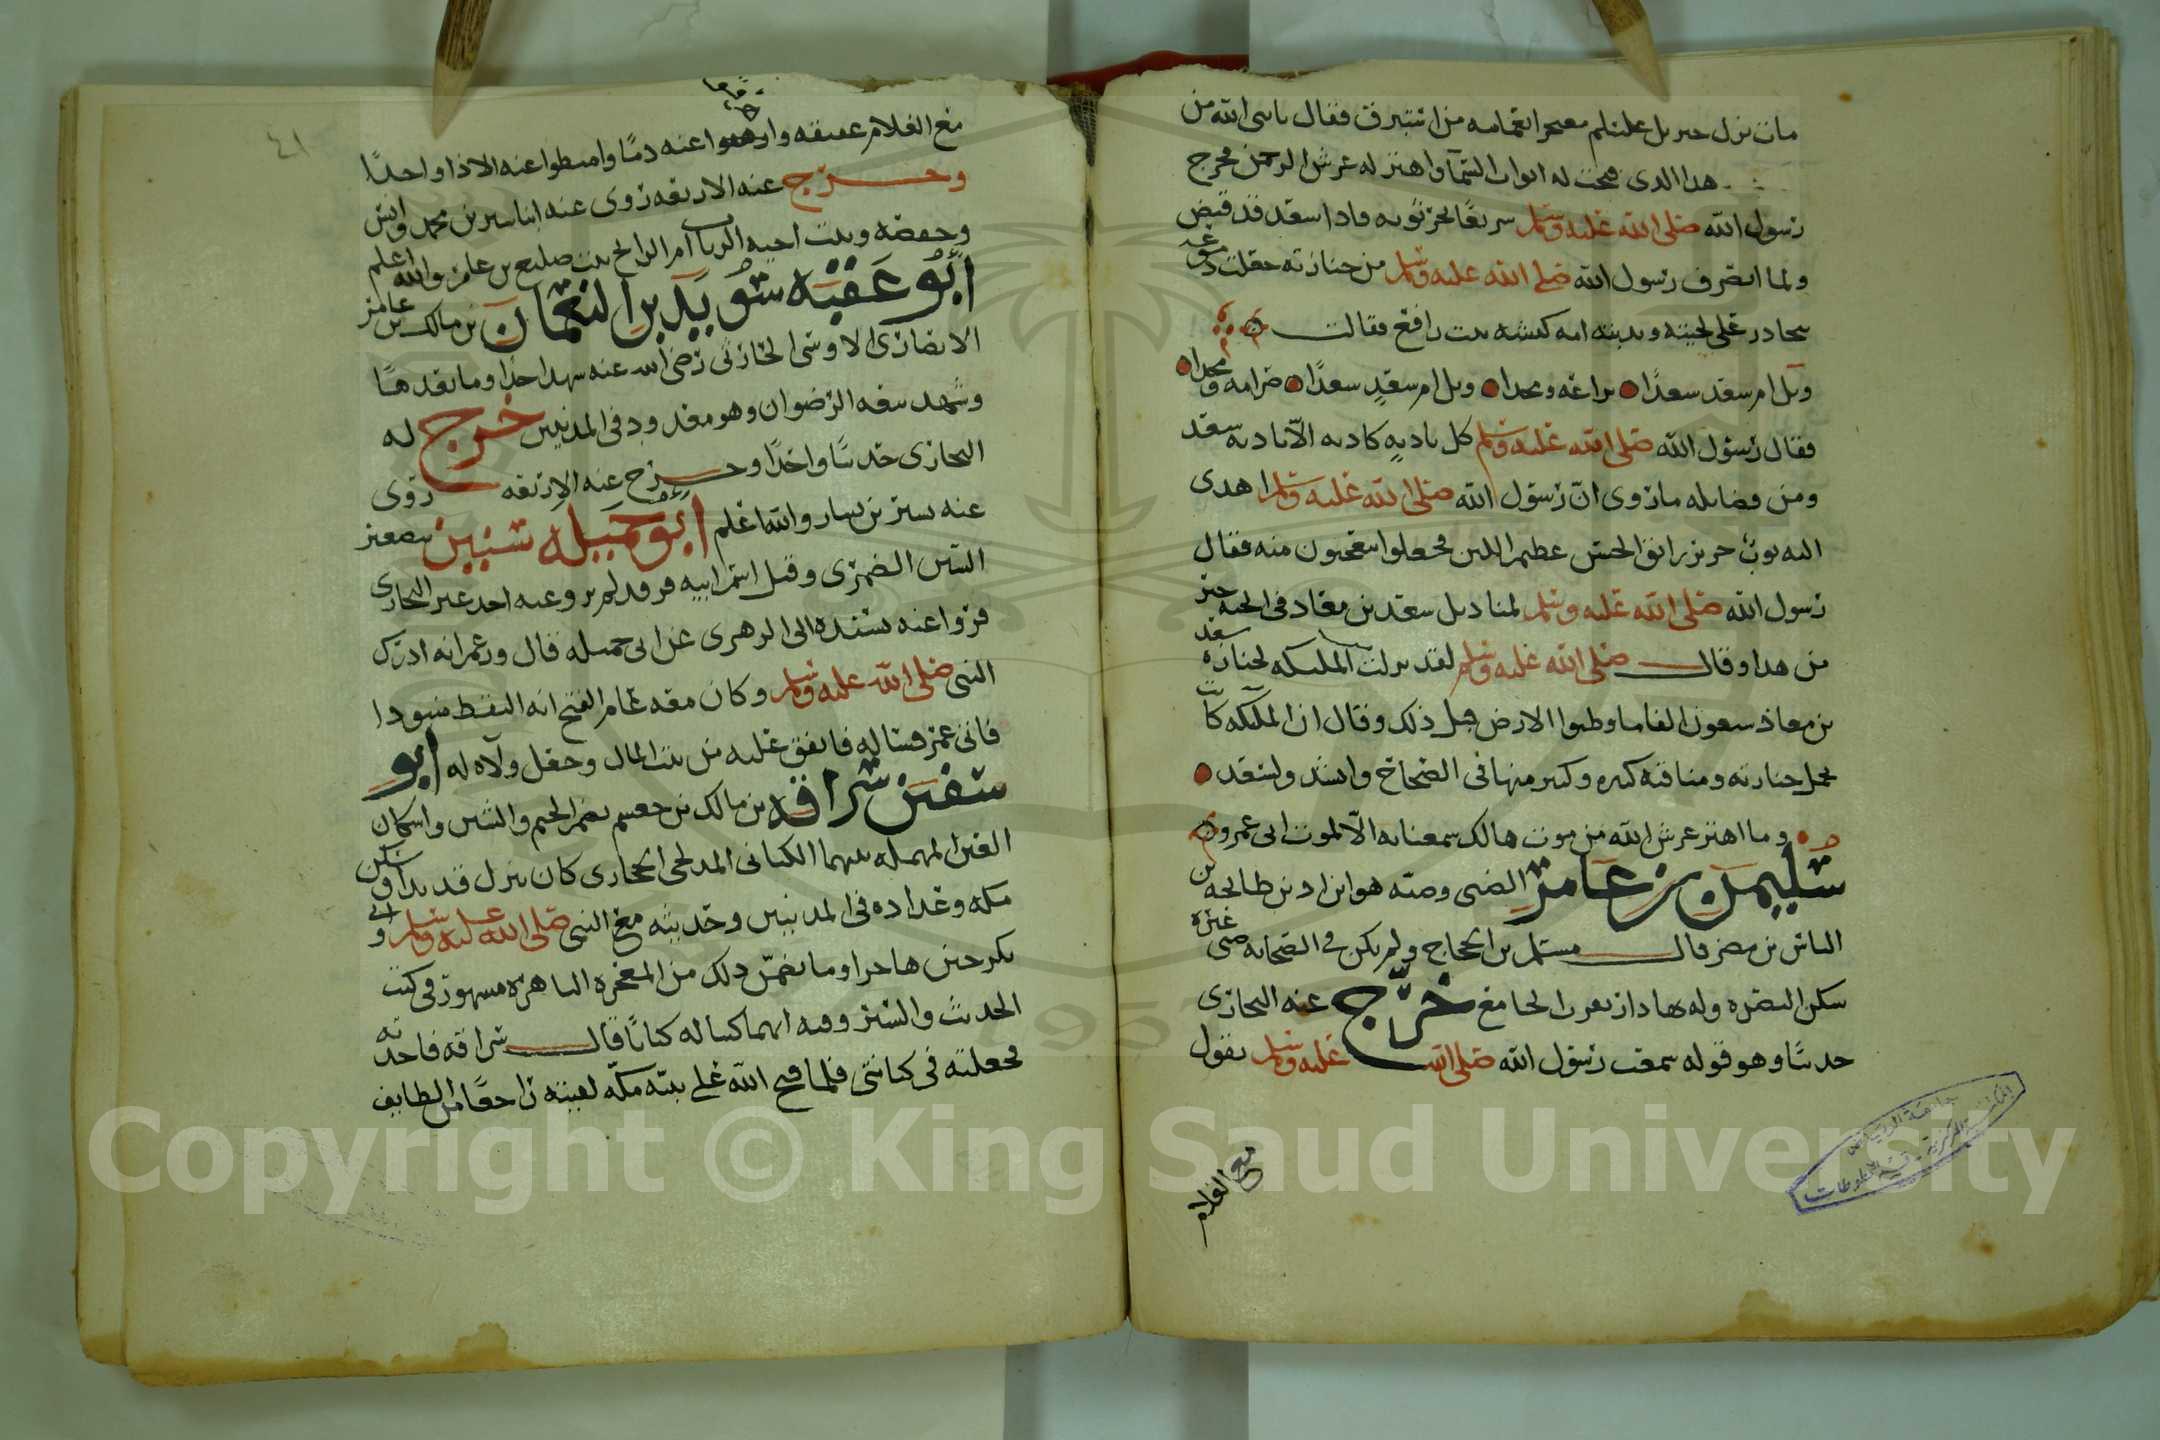 مات نزل جبريل عليلم معتجرا بعمامه من استبرق فقال يا نبي الله من
هذا الذي فتحت له ابواب السماء واهتز له عرش الرحمن فخرج
رسول الله صلى الله عليه وسلم سريعا يجر ثوبه فاذا سعد قد قبض
ولما انصرف رسول الله صلى الله عليه وسلم من جنازته جعلت دموعه
تحادر على لحيته وندبته امه كبشه بنت رافع فقالت
ويل ام سعد سعدًا براعه ومجدا ويل ام سعدٍ سعدًا صرامه ومجدا
فقال رسول الله صلى الله عليه وسلم كل نادبةٍ كاذبه الّا نادبه سعد
ومن فضايله ما روى انّ رسول الله صلى الله عليه وسلم اهدى
اليه ثوب حرير فجعلوا يتعجبون منه فقال
رسول الله صلى الله عليه وسلم لمناديل سعد بن معاذ في الجنة خير
من هذا وقال صلى الله عليه وسلم لقد نزلت المليكه لجنازه سعد
بن معاذ سبعون الفا ما وطيوا الارض قبل ذلك وقال ان الملئكه كانت
تحمل جنازته ومناقبه كثيره وكثير منها في الصحاح وانشد ولسعد
وما اهتز عرش الله من موت هالك سمعنا به الّا لموت ابى عمرو
سليمن بن عامر الضبي وضبه هو ابن اد بن طابخه بن
الياس بن مضر قال مسلم بن الحجاج ولم يكن في الصحابه ضبى غيره
سكن البصره وله بها دار بقرب الجامع خرّج عنه البخارى
حديثًا وهو قوله سمعت رسول الله صلى الله عليه وسلم يقول
مع الغلام
٤١
مع الغلام عقيقه واهرقوا عنه دمًا واميطوا عنه الاذا واحدًا
وخرّج عنه الاربعه روى عنه ابنا سيرين محمد وانس
وحفصه وبنت اخيه الرباب ام الرايح بنت صليع بن عامر والله اعلم
ابو عقبه سويد بن النعمان بن مالك بن عامر
الانصارى الاوسى الحارثى رضى الله عنه شهد احدا وما بعدها
وشهد بيعه الرضوان وهو معدود في المدنيين خرج له
البخارى حديثًا واحدًا وخرج عنه الاربعه روى
عنه بشير بن يسار والله اعلم ابو جميله سنين
السين الضمرى وقيل اسم ابيه فرقد لم يرو عنه احد غير البخارى
فروا عنه بسنده الى الزهرى عن ابى جميله قال وزعم انه ادرك
النبي صلى الله عليه وسلم وكان معه عام الفتح انه التقط منبوذا
فاتى عمر فساله فانفق عليه من بيت المال وجعل ولاه له ابو
سفين سراقه بن مالك بن جعشم بضم الجيم والشين واسكان
العين المهمله بينهما الكنانى المدلجى الحجارى كان ينزل قديدا وسكن
مكه وعداده في المدنيين وحديثه مع النبي صلى الله عليه وسلم وابى
بكر حين هاجرا وما تضمّن ذلك من المعجزه الباهره مشهور في كتب
الحديث والسير وفيه انهما كتبا له كتابًا قال سراقه فاخذته
فجعلته في كنانتى فلما فتح الله على نبيه مكّه لقيته راجعًا من الطايف
Copyright © King Saud University
1957